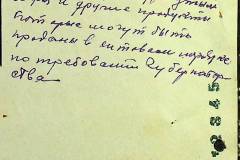 и другие продукты
которые могут быть
проданы в оптовом порядке
по требованию Губернатор
ства
2345